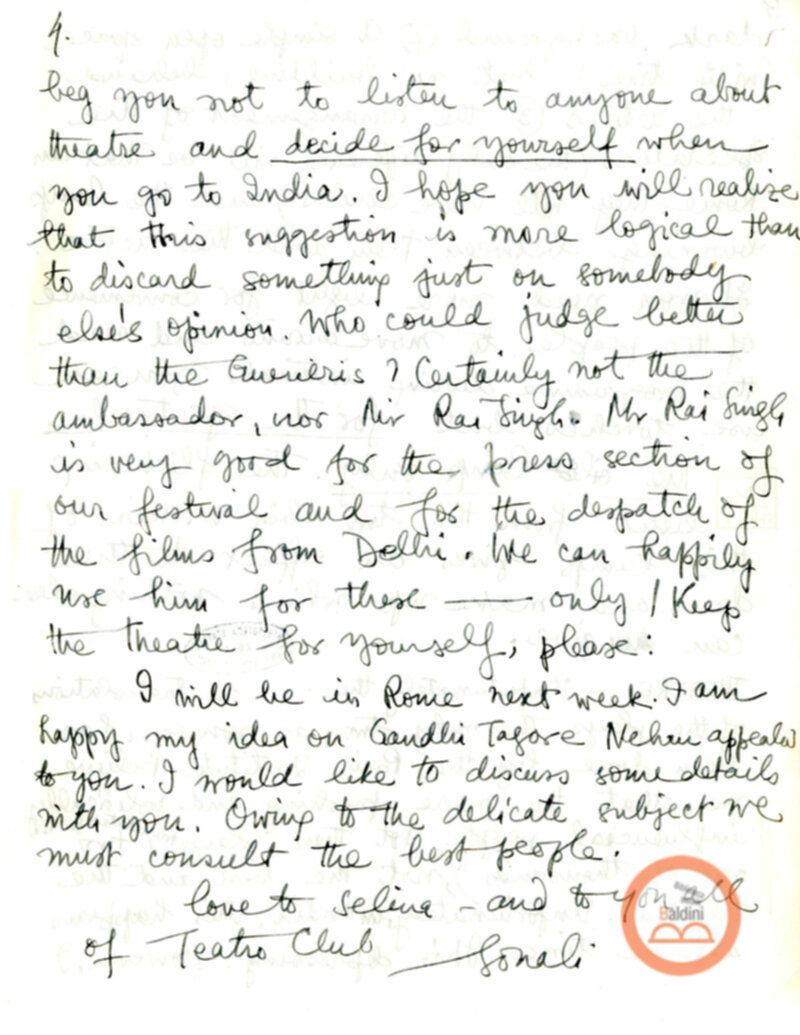 4.
beg you not to listen to anyone about
theatre and decide for yourself when
you go to India. I hope you will realize
that this suggestion is more logical than
to discard something just on somebody
else's opinion. Who could judge better
than the Guerieris? Certainly not the
ambassador, nor Mr Rai Singh. Mr Rai Singh
is very good for the press section of
our festival and for the despatch of
the films from Delhi. We can happily
use him for these — only! Keep
the theatre for yourself, please!
I will be in Rome next week. I am
happy my idea on Gandhi Tagore Nehru appeals
to you. I would like to discuss some details
with you. Owing to the delicate subject we
must consult the best people.
love to Selina - and to you all
of Teatro Club
Sonali
Baldini